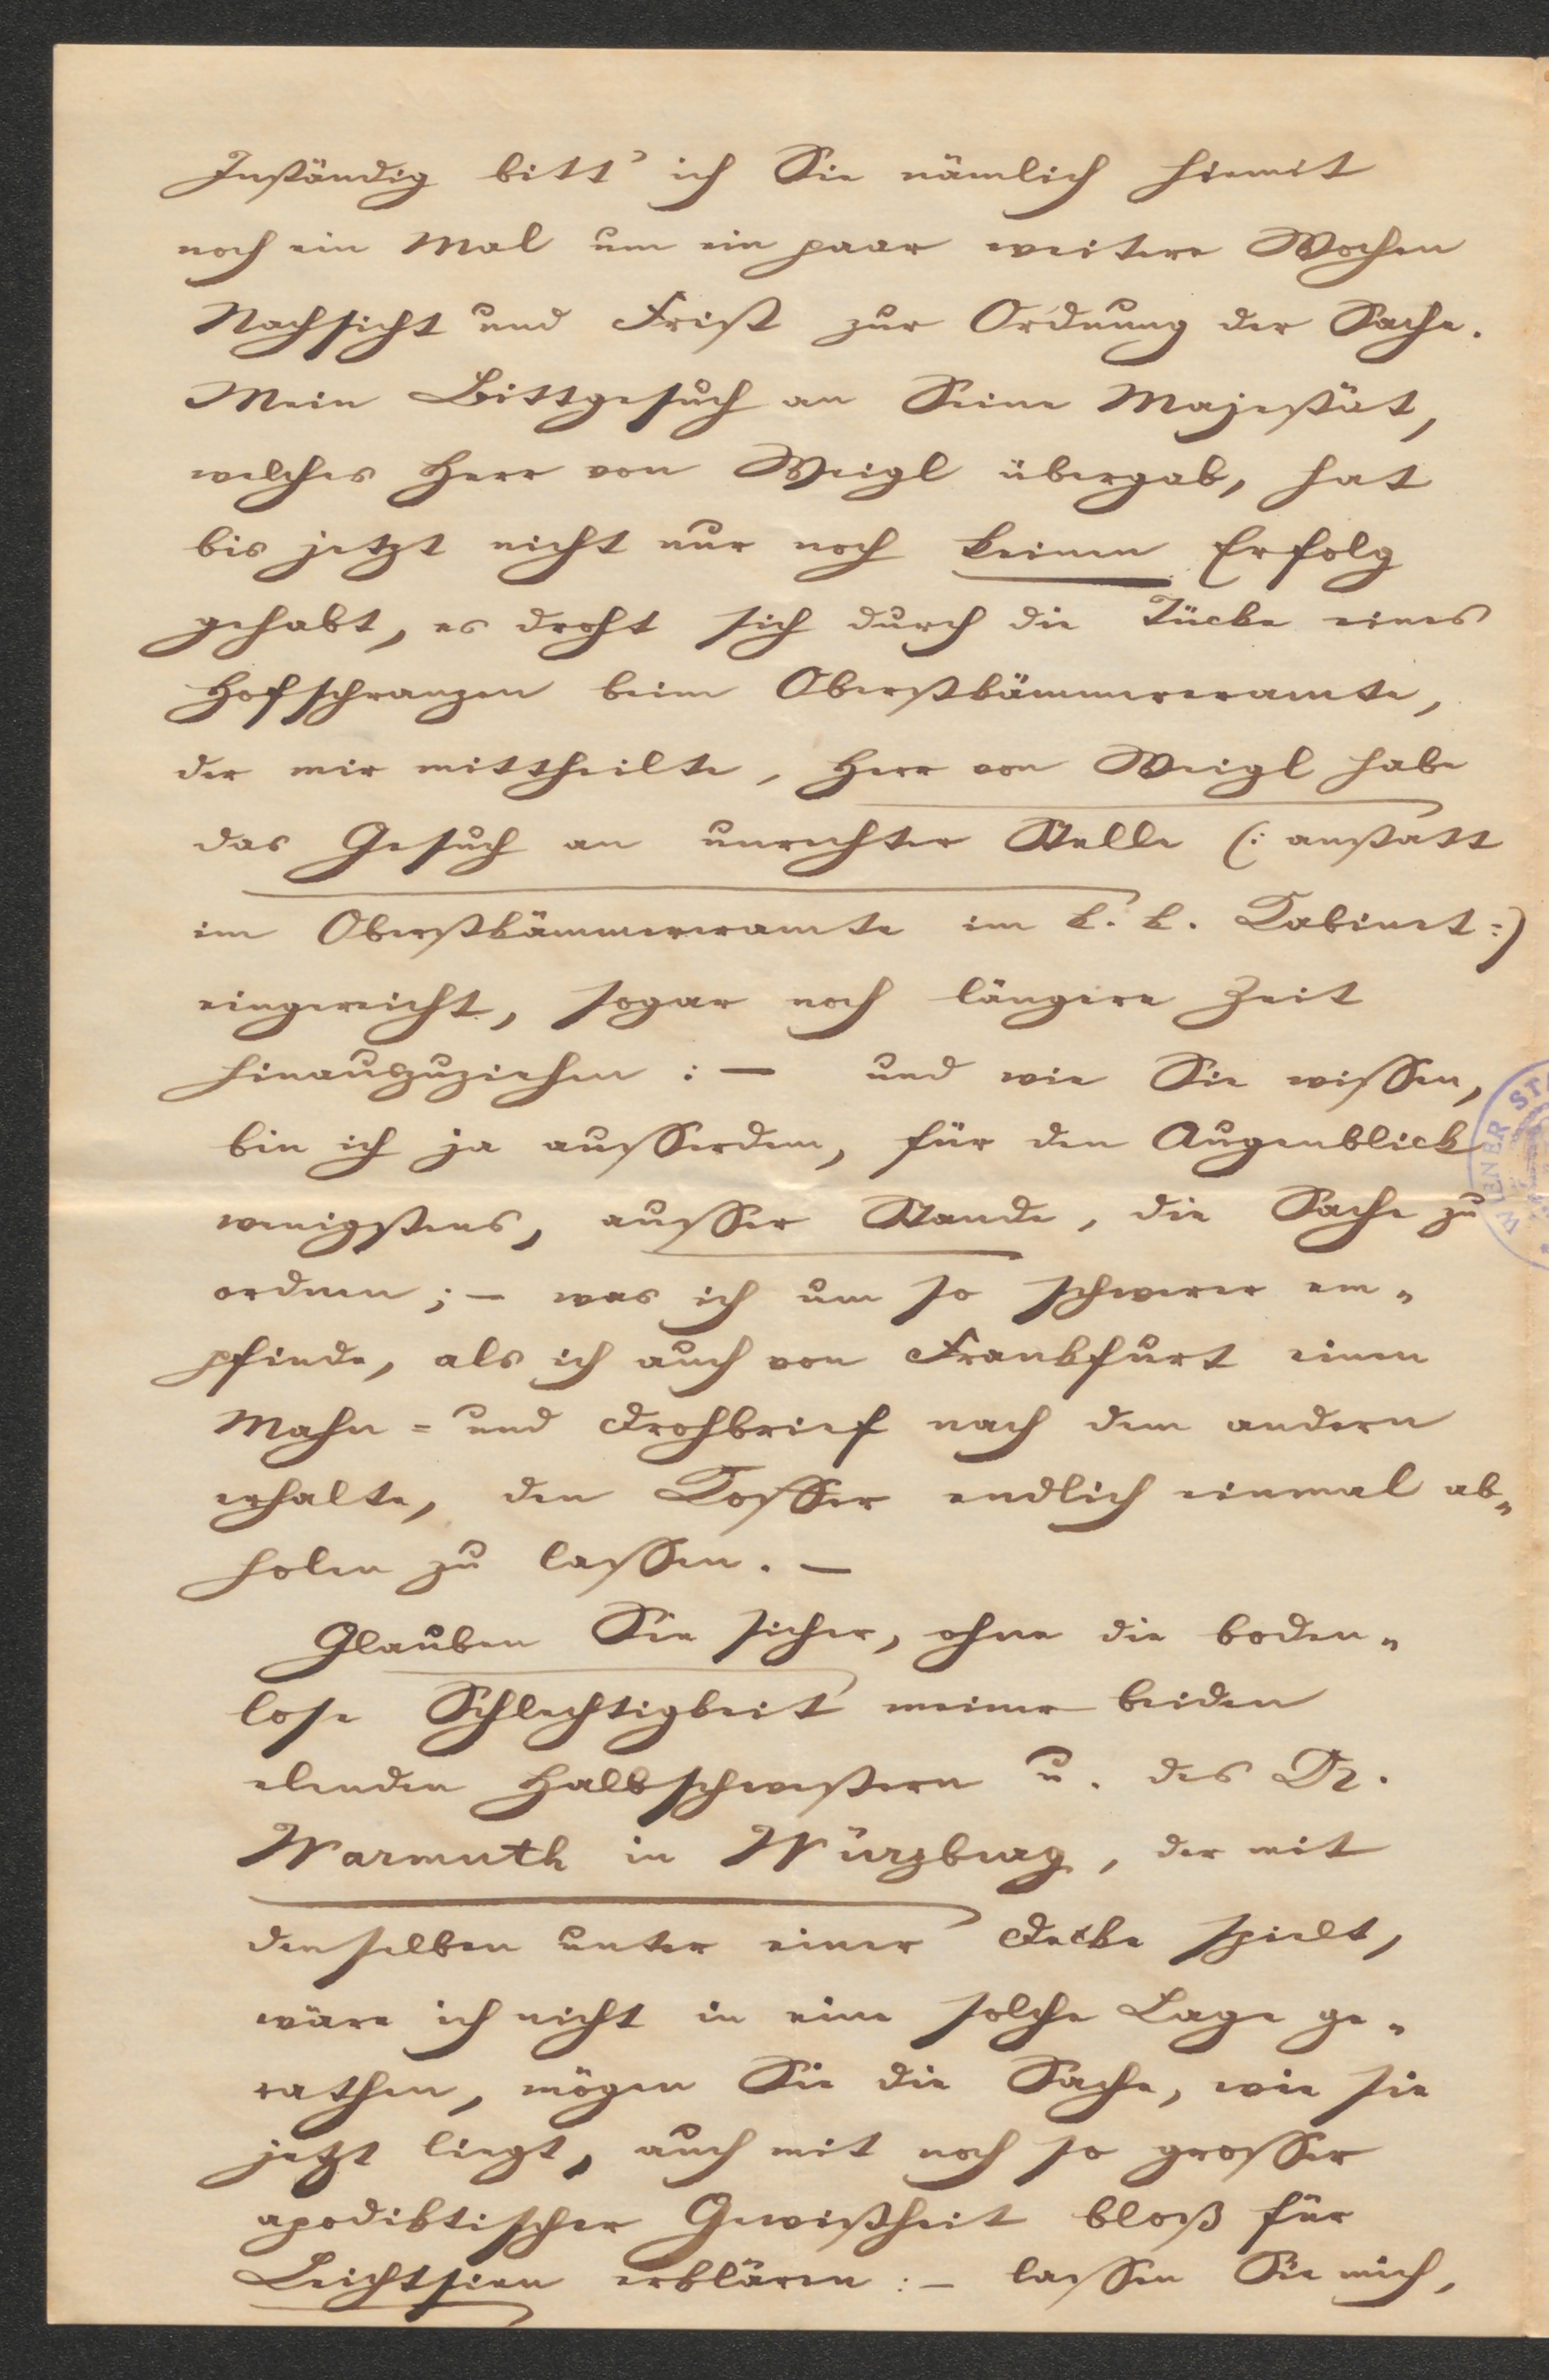 Inständig bitt' ich Sie nämlich hiemit
noch ein Mal um ein paar weitere Wochen
Nachsicht und Frist zur Ordnung der Sache.
Mein Bittgesuch an Seine Majestät,
welches Herr von Weigl übergab, hat
bis jetzt nicht nur noch keinen Erfolg
gehabt, es droht sich durch die Tücke eines
Hofschranzen beim Oberstkämmereramte,
der mir mittheilte, Herr von Weigl habe
das Gesuch an unrechter Stelle (: anstatt
im Oberstkämmereramte im k. k. Kabinet :)
eingereicht, sogar noch längere Zeit
hinauszuziehen : — und wie Sie wissen,
bin ich ja ausserdem, für den Augenblick
wenigstens, ausser Stande, die Sache zu
ordnen ; — was ich um so schwerer em„
pfinde, als ich auch von Frankfurt einen
Mahn = und Drohbrief nach dem andern
erhalte, den Koffer endlich einmal ab„
holen zu lassen. —
Glauben Sie sicher, ohne die boden„
lose Schlechtigkeit meiner beiden
elenden Halbschwestern u. des Dr.
Warmuth in Würzburg, der mit
denselben unter einer Decke spielt,
wäre ich nicht in eine solche Lage ge„
rathen, mögen Sie die Sache, wie sie
jetzt liegt, auch mit noch so grosser
apodiktischer Gewißheit bloß für
Leichtsinn erklären : — lassen Sie mich,
WIENER ST